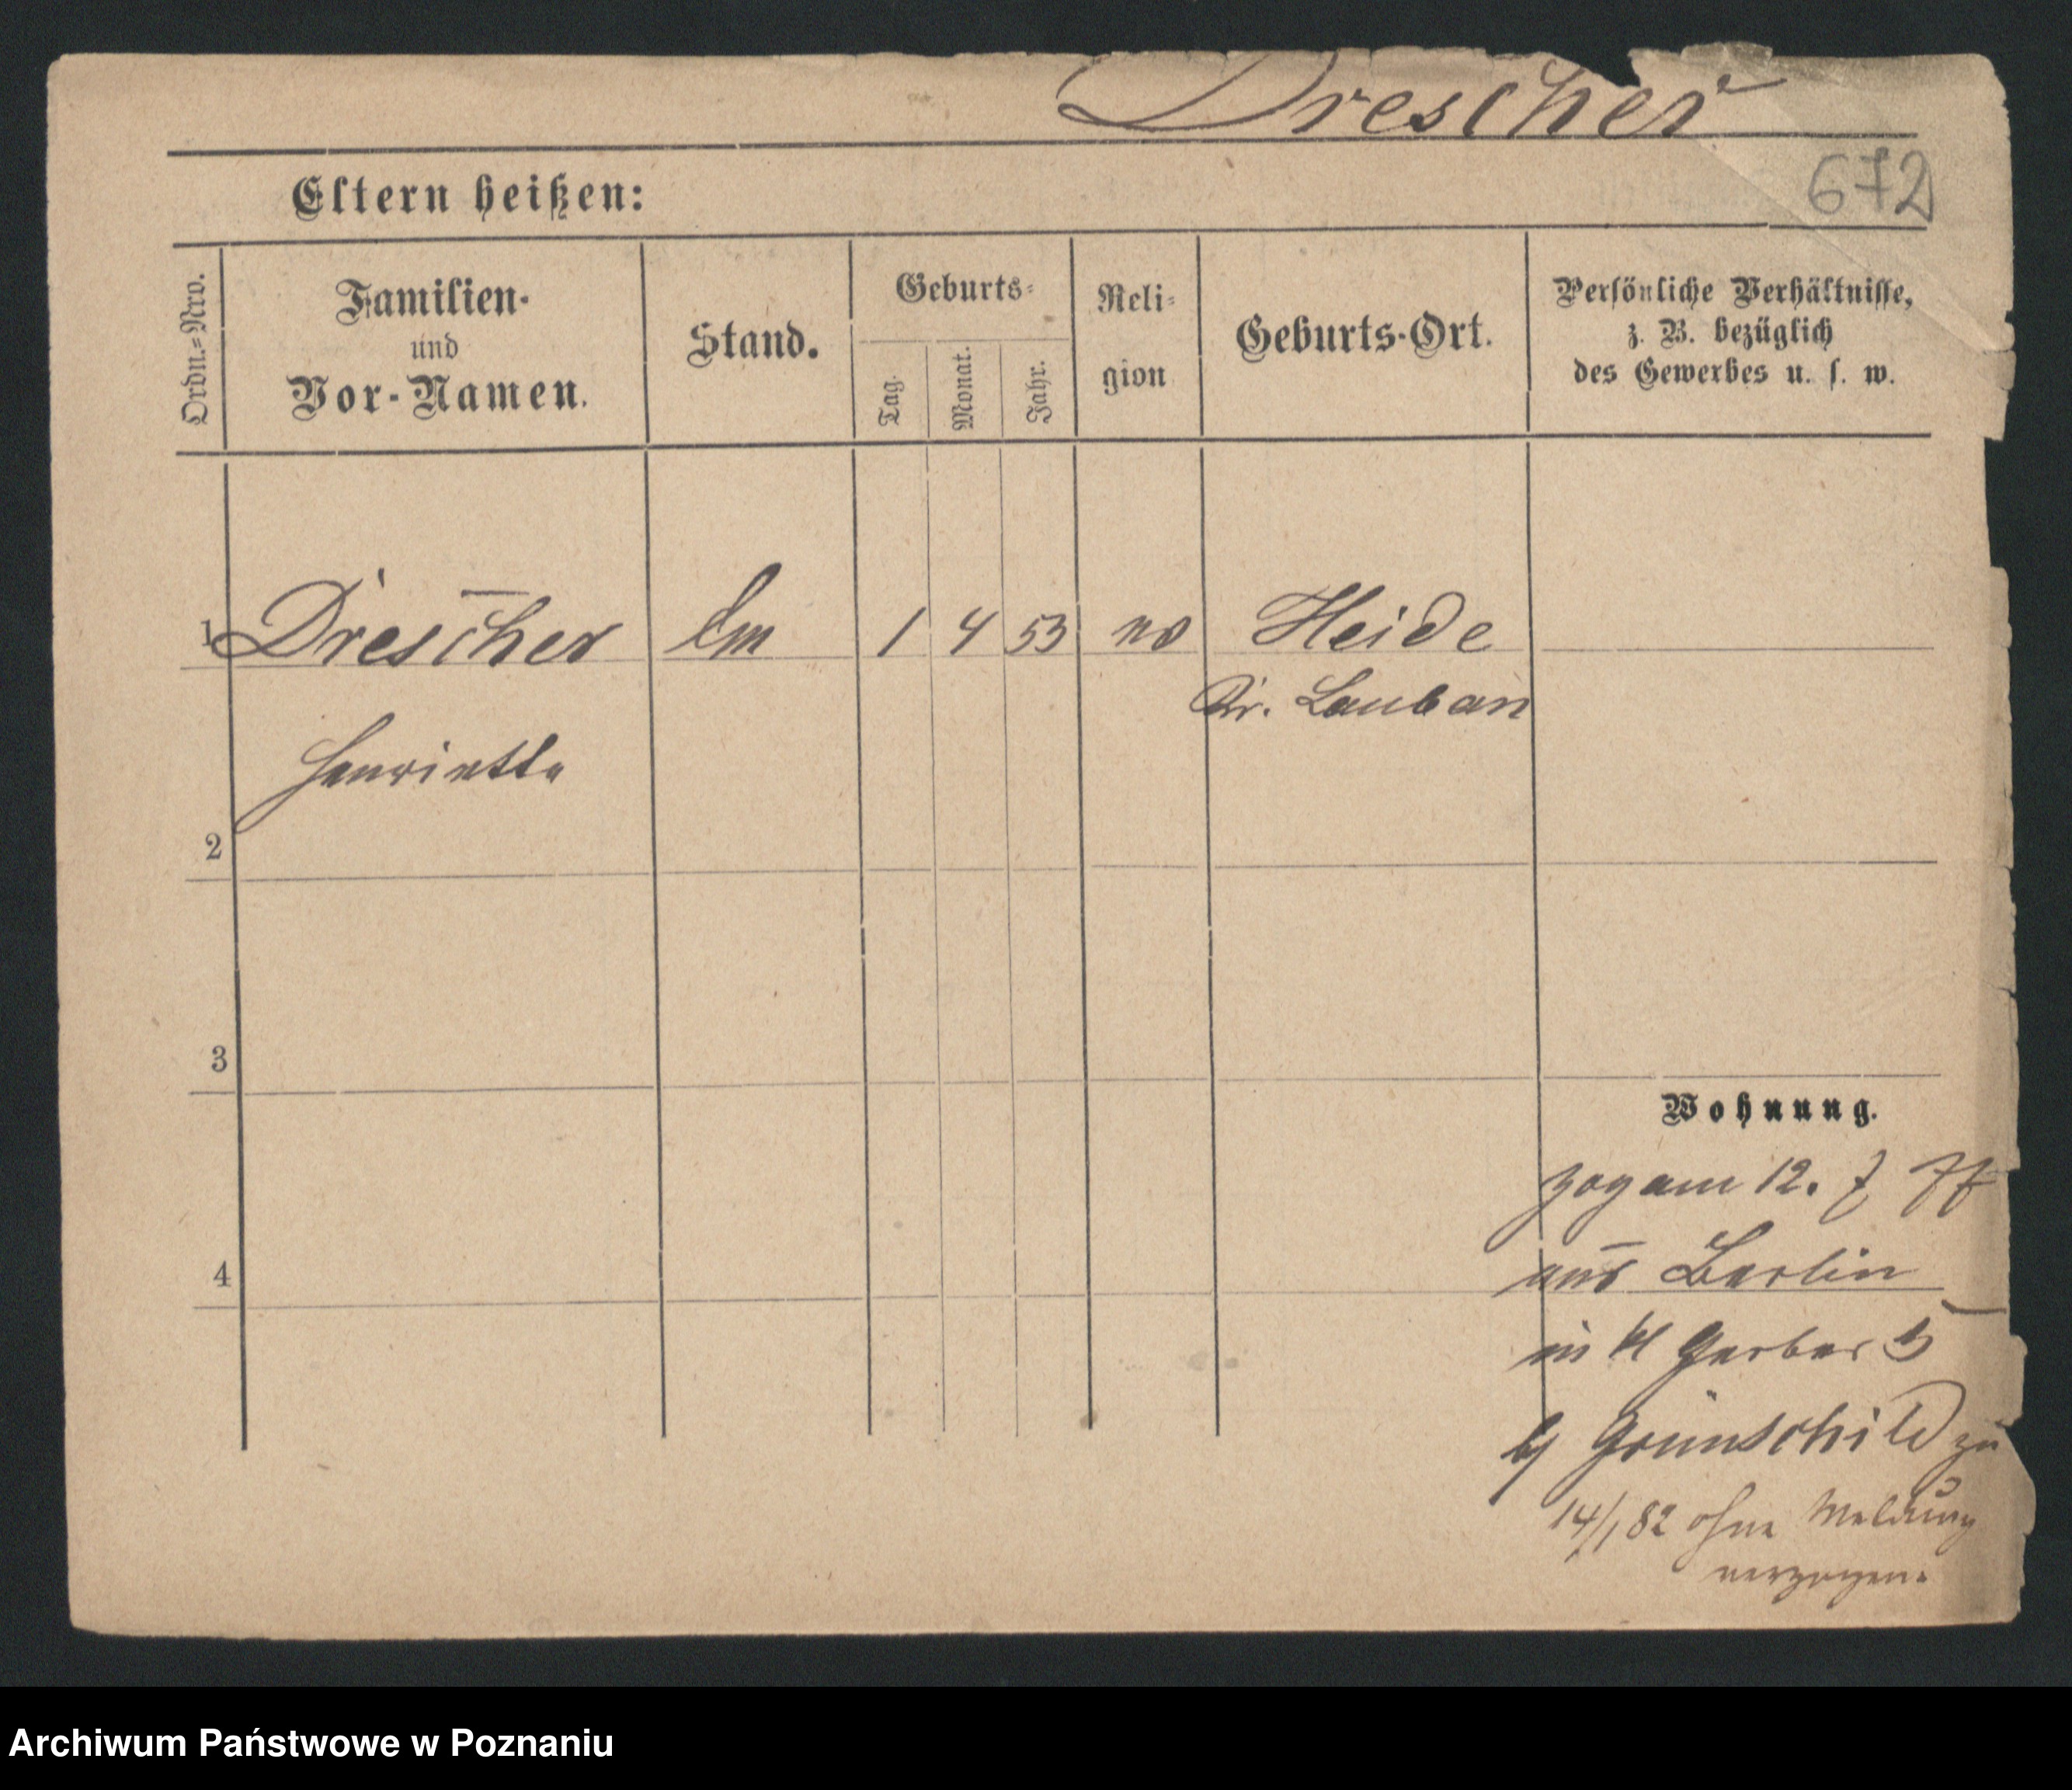 Drescher
672
Eltern heißen:
Ordn.=Nro.
Familien-
und
Vor-Namen.
Stand.
Geburts-
Tag.
Monat.
Jahr.
Reli-
gion
Geburts-Ort.
Persönliche Verhältnisse,
z. B. bezüglich
des Gewerbes u. s. w.
1 Drescher 1 4 53 Heide
Kr. Lauban
Henriette
2
3
Wohnung.
zog am 12. 7 77
4
aus Berlin
in kl Gerber 5
b/ Grünschild zu
14/1 82 ohne Meldung
verzogen.
Archiwum Państwowe w Poznaniu